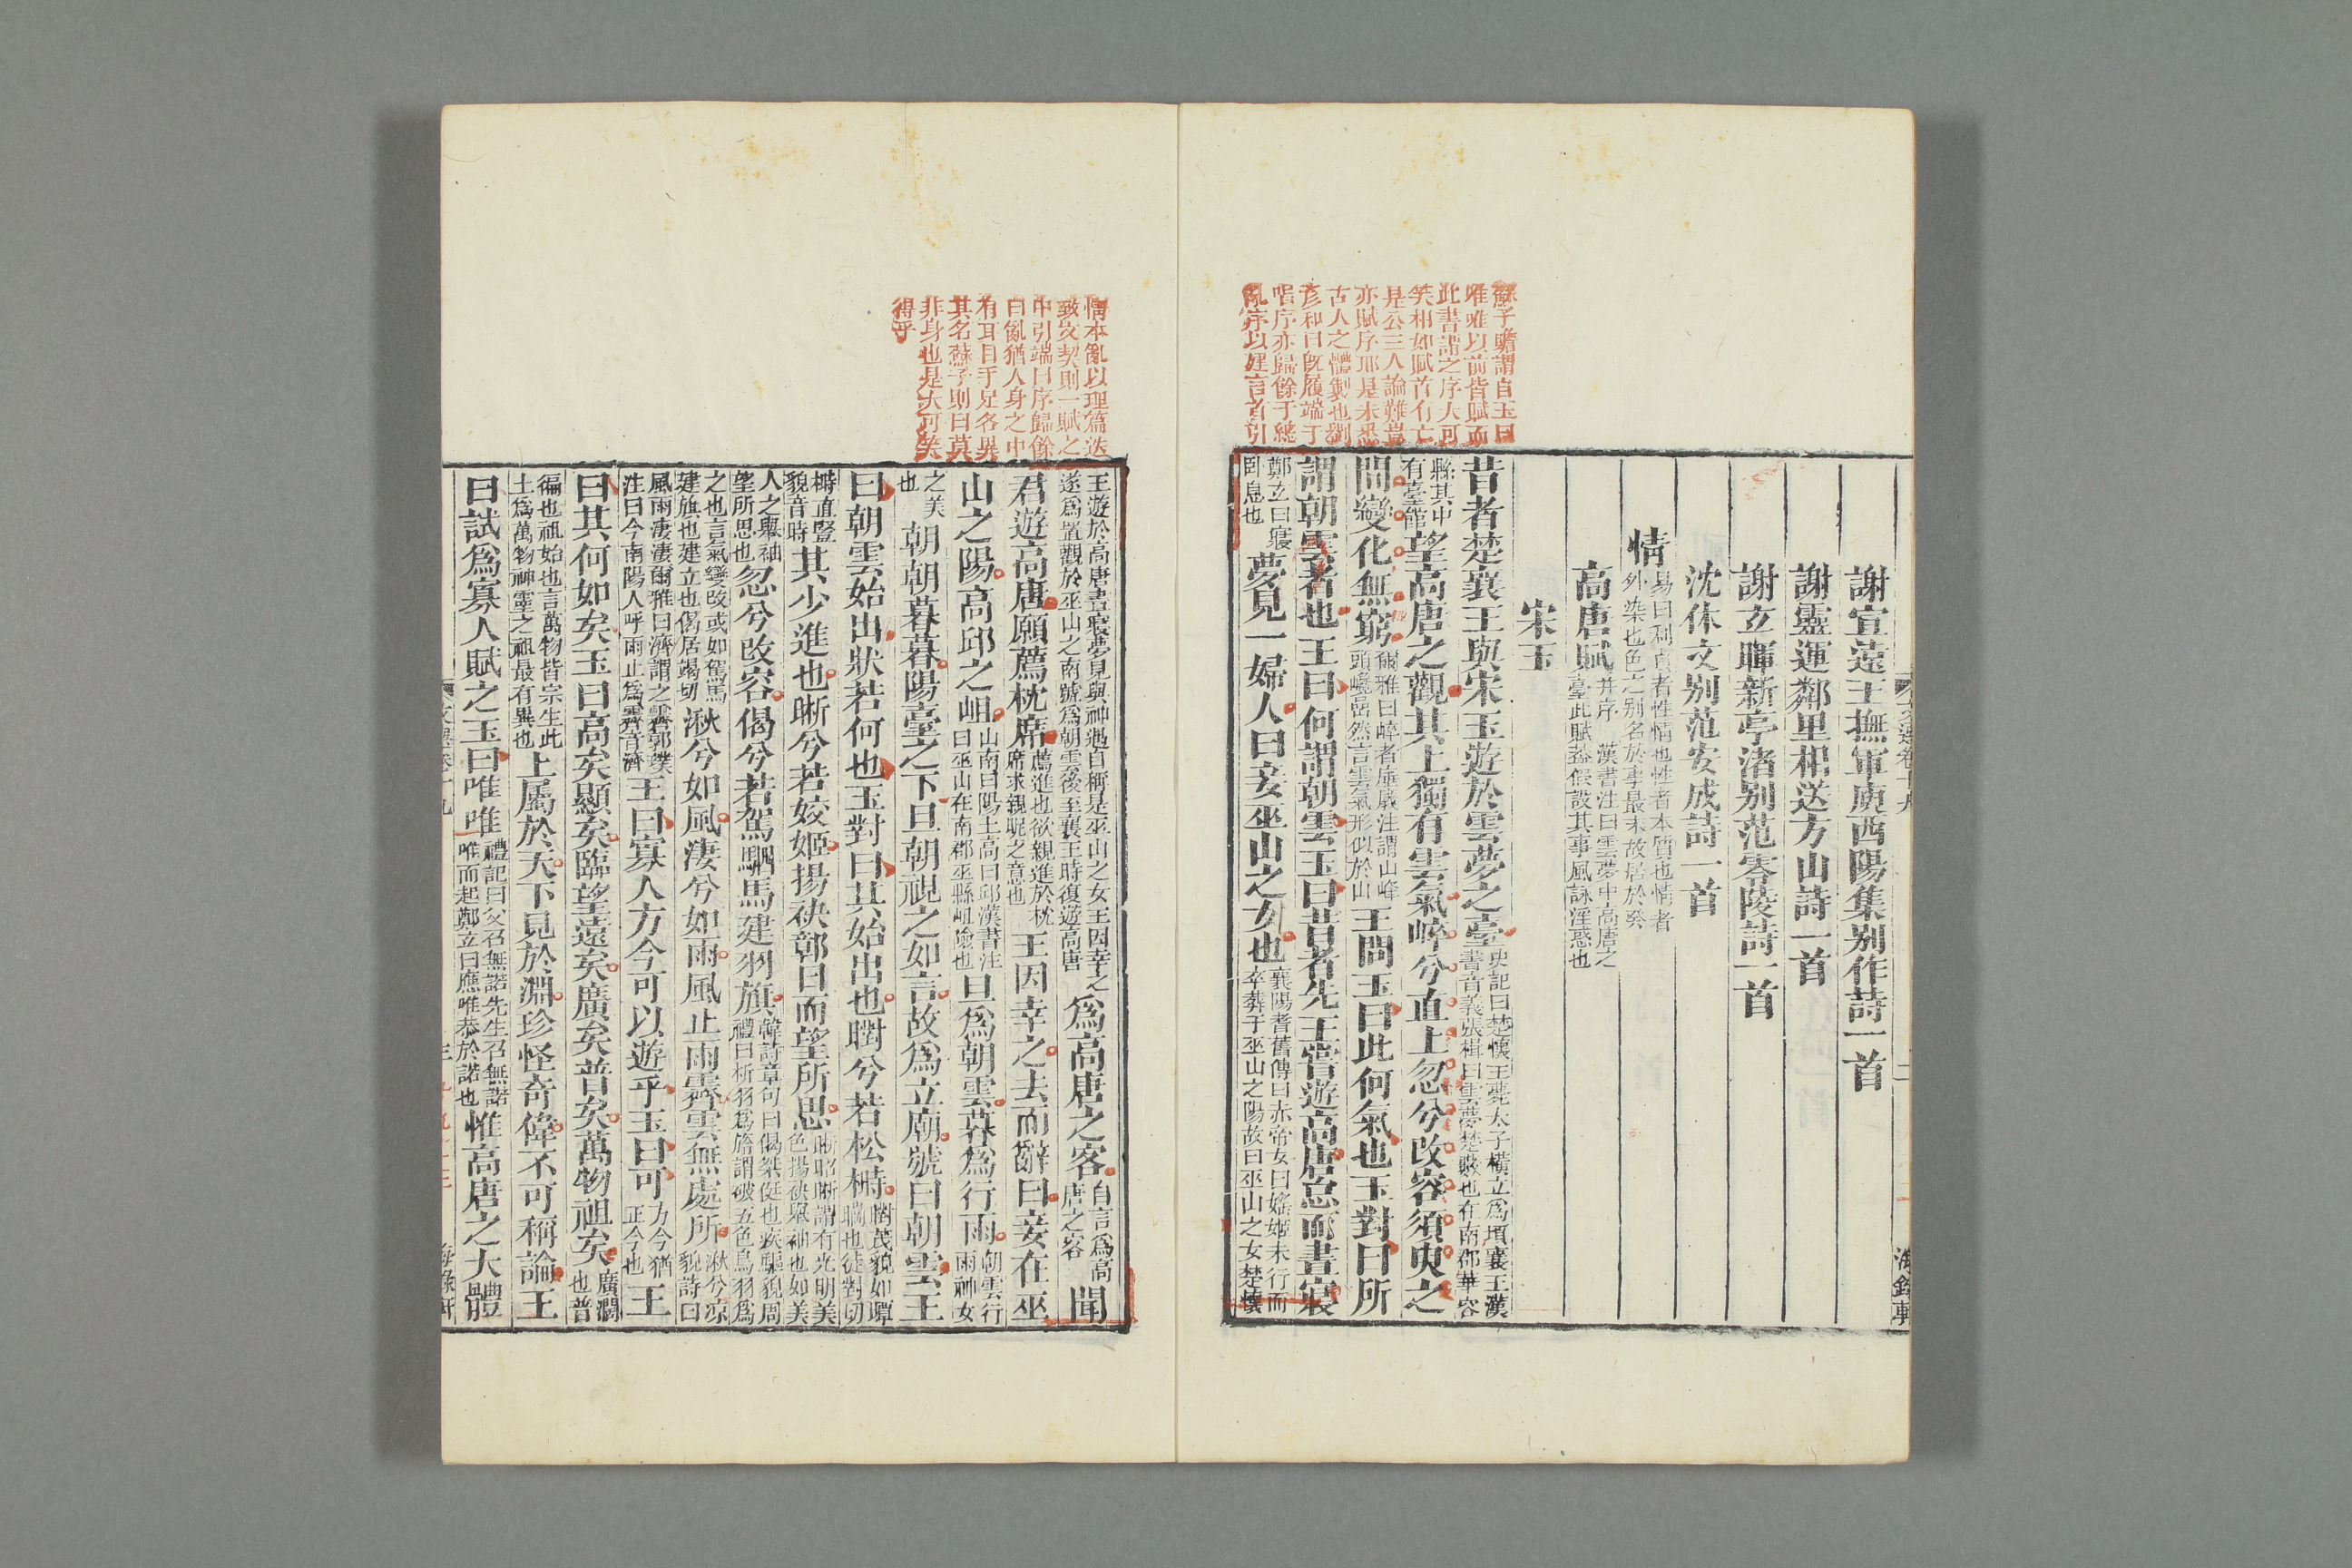 文選卷十九
二
海錄軒
謝宣遠王撫軍庾西陽集别作詩一首
謝靈運鄰里相送方山詩一首
謝玄暉新亭渚别范零陵詩一首
沈休文别范安成詩一首
情易曰利貞者性情也性者本質也情者外染也色之别名於事最末故居於癸
高唐賦并序 漢書注曰雲夢中高唐之臺此賦葢假設其事風詠淫惑也
宋玉
昔者楚襄王與宋玉遊於雲夢之臺史記曰楚懷王薨太子横立爲頃襄王漢書音義張揖曰雲夢楚藪也在南郡華容
縣其中有臺館望高唐之觀其上獨有雲氣崪兮直上忽兮改容須臾之
間變化無窮爾雅曰崪者厜㕒注謂山峰頭巉嵒然言雲氣形似於山王問玉曰此何氣也玉對曰所
謂朝雲者也王曰何謂朝雲玉曰昔者先王嘗遊高唐怠而晝寢
鄭玄曰寢卧息也夢見一婦人曰妾巫山之女也襄陽耆舊傳曰赤帝女曰媱姬未行而卒葬于巫山之陽故曰巫山之女楚懷
蘇子瞻謂自玉曰
唯唯以前皆賦而
此書謂之序大可
笑相如賦首有亡
是公三人論難豈
亦賦序耶是未悉
古人之體製也劉
彥和曰旣履端于
唱序亦歸餘于總
亂序以建言首引
情本亂以理篇迭
致文契則一賦之
中引端曰序歸餘
曰亂猶人身之中
有耳目手足各異
其名蘇子則曰莫
非身也是大可笑
得乎
王遊於高唐晝寢夢見與神遇自稱是巫山之女王因幸之遂爲置觀於巫山之南號爲朝雲後至襄王時復遊高唐爲高唐之客自言爲高唐之客聞
君遊高唐願薦枕席薦進也欲親進於枕席求親昵之意也王因幸之去而辭曰妾在巫
山之陽高邱之岨山南曰陽土高曰邱漢書注曰巫山在南郡巫縣岨險也旦爲朝雲暮爲行雨朝雲行雨神女
之美也朝朝暮暮陽臺之下旦朝視之如言故爲立廟號曰朝雲王
曰朝雲始出狀若何也玉對曰其始出也㬣兮若松榯㬣茂貌如曋㬣也徒對切
榯直豎貌音時其少進也晰兮若姣姬揚袂鄣日而望所思晰昭晰謂有光明美色揚袂舉袖也如美
人之舉袖望所思也忽兮改容偈兮若駕駟馬建羽旗韓詩章句曰偈桀侹也疾驅貌周禮曰析羽爲旌謂破五色鳥羽爲
之也言氣變改或如駕馬建旗也建立也偈居竭切湫兮如風淒兮如雨風止雨霽雲無處所湫兮凉貌詩曰
風雨淒淒爾雅曰濟謂之霽郭璞注曰今南陽人呼雨止爲霽音濟王曰寡人方今可以遊乎玉曰可方今猶正今也王
曰其何如矣玉曰高矣顯矣臨望遠矣廣矣普矣萬物祖矣廣濶也普
徧也祖始也言萬物皆宗生此土爲萬物神靈之祖最有異也上屬於天下見於淵珍怪奇偉不可稱論王
曰試爲寡人賦之玉曰唯唯禮記曰父召無諾先生召無諾唯而起鄭玄曰應唯恭於諾也惟高唐之大體